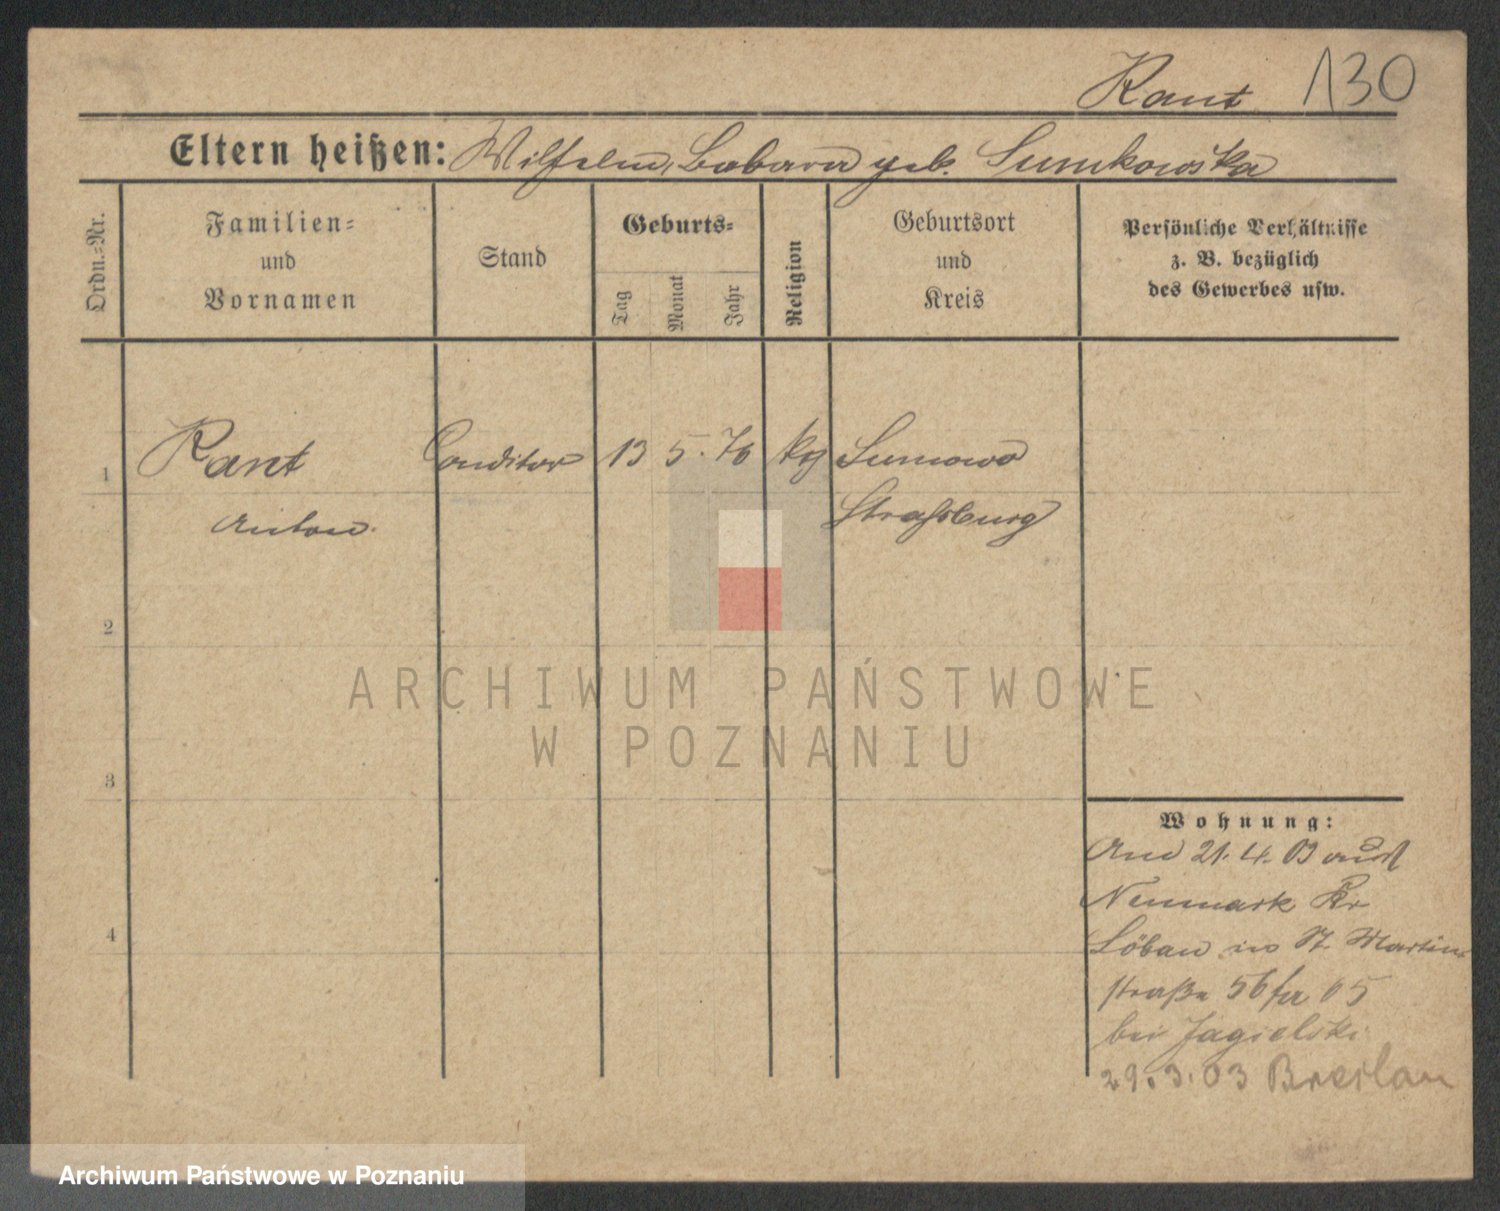 Kant 130
Eltern heißen: Wilhelm, Babara geb. Sumkowska
Ordn.=Nr.
Familien=
und
Vornamen
Stand
Geburts=
Tag
Monat
Jahr
Religion
Geburtsort
und
Kreis
Persönliche Verhältnisse
z. B. bezüglich
des Gewerbes usw.
1 Kant Conditor 13 5. 76 kg Sumowo
Anton. Straßburg
2
3
4
Wohnung:
21. 4. 03
Neumark Kr
Löbau in St. Martin
straße 56 05
bei Jagielski
29. 3. 03 Breslau
ARCHIWUM PAŃSTWOWE
W POZNANIU
Archiwum Państwowe w Poznaniu